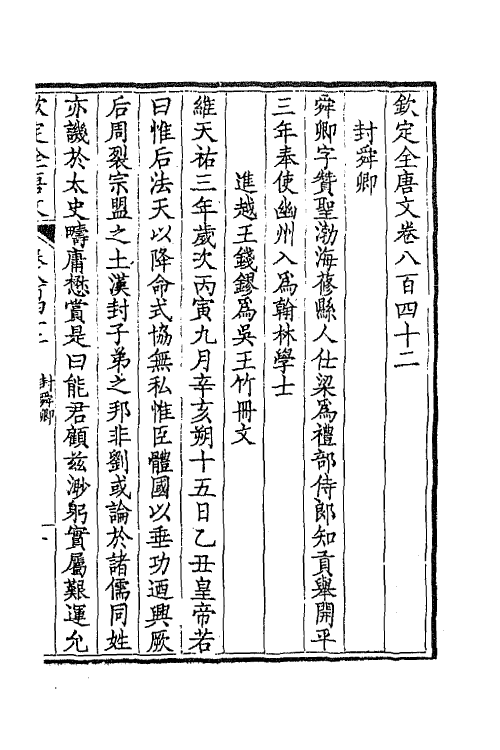 欽定全唐文卷八百四十二
封舜卿
舜卿字贊聖渤海蓨縣人仕梁爲禮部侍郎知貢舉開平
三年奉使幽州入爲翰林學士
進越王錢鏐爲吳王竹冊文
維天祐三年歲次丙寅九月辛亥朔十五日乙丑皇帝若
曰惟后法天以降命式協無私惟臣體國以垂功迺興厥
后周裂宗盟之土漢封子弟之邦非劉或論於諸儒同姓
亦譏於太史疇庸懋賞是曰能君顧茲渺躬實屬艱運允
欽定全唐文
封舜卿
一